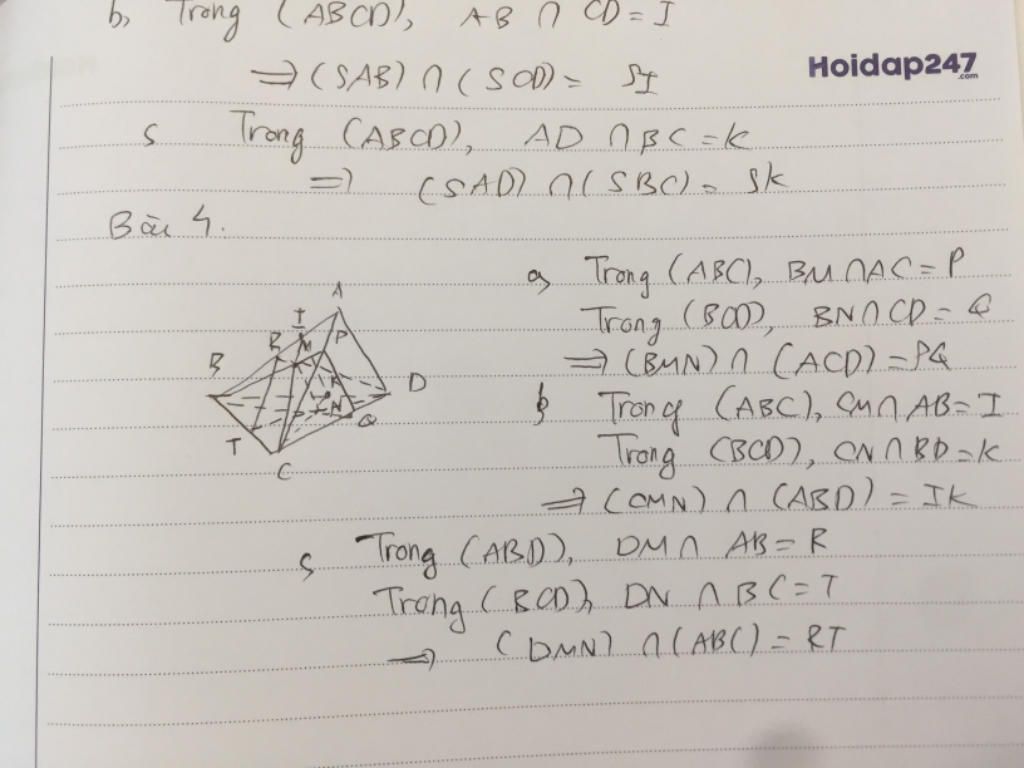 b, Trong (ABCD), AB ∩ CD = I
⇒ (SAB) ∩ (SCD) = SI
Hoidap247
.com
c, Trong (ABCD), AD ∩ BC = K
⇒ (SAD) ∩ (SBC) = SK
Bài 4.
a, Trong (ABC), BM ∩ AC = P
Trong (BCD), BN ∩ CD = Q
⇒ (BMN) ∩ (ACD) = PQ
b, Trong (ABC), CM ∩ AB = I
Trong (BCD), CN ∩ BD = K
⇒ (CMN) ∩ (ABD) = IK
c, Trong (ABD), DM ∩ AB = R
Trong (BCD), DN ∩ BC = T
⇒ (DMN) ∩ (ABC) = RT
A
I
R
M
P
B
K
D
N
Q
T
C